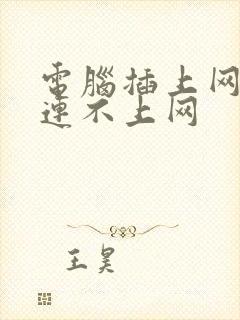 電腦插上网
連不上网
王昊